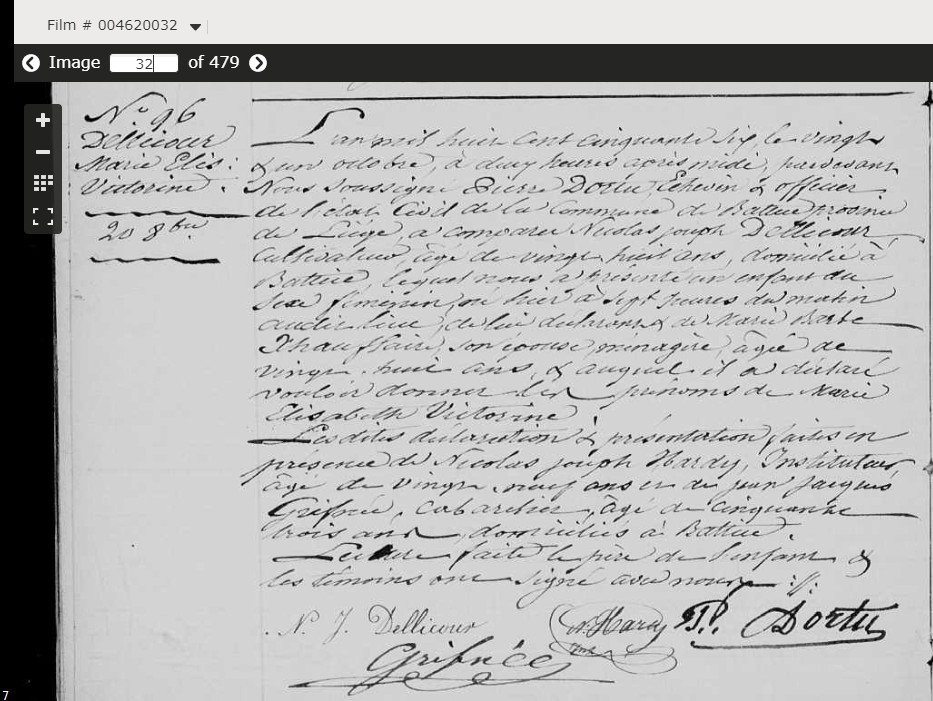 Film # 004620032
Image 32 of 479
N° 96
Dellicour
Marie Elis:
Victorine.
20 8bre
L'an mil huit cent cinquante six, le vingt
& un octobre, à deux heures après midi, pardevant
Nous soussigné Pierre Dortu, Echevin & officier
de l'état Civil de la Commune de Battice province
de Liège, a comparu Nicolas joseph Dellicour,
Cultivateur, âgé de vingt huit ans, domicilié à
Battice, lequel nous a présenté un enfant du
sexe féminin, né hier à sept heures du matin
audit lieu, de lui déclarant & de Marie Barbe
Xhauflaire, son épouse, ménagère, âgée de
vingt huit ans, & auquel il a déclaré
vouloir donner les prénoms de Marie
Elisabeth Victorine.
Lesdites déclaration & présentation faites en
présence de Nicolas joseph Hardy, Instituteur,
âgé de vingt neuf ans et de jean jacques
Grifnée, cabaretier, âgé de cinquante
trois ans, domiciliés à Battice.
Lecture faite le père de l'enfant &
les témoins ont signé avec nous
N. J. Dellicour
N. Hardy
P. Dortu
Grifnée
7